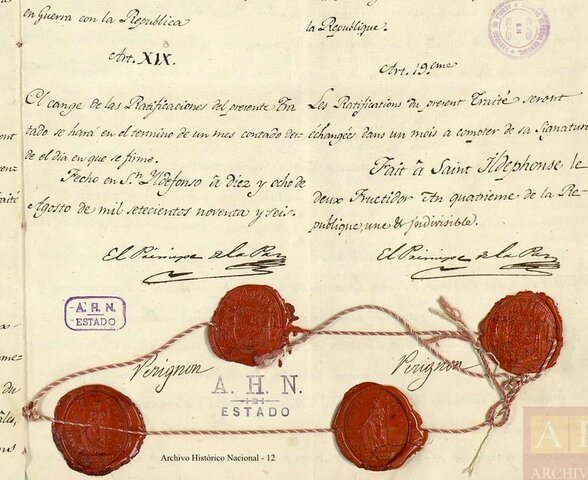 en Guerra con la Republica
Art. XIX.
El cange de las Ratificaciones del presente Tra
tado se hará en el termino de un mes contado des-
de el dia en que se firme.
Fecho en Sn. Yldefonso à diez y ocho de
Agosto de mil setecientos noventa y seis.
El Principe de la Paz
A. H. N.
ESTADO
Perignon
la Republique.
Art. 19.eme
Les Ratifications du present Traité seront
échangées dans un mois a compter de sa Signature
Fait à Saint Ildephonse le
deux Fructidor An quatrieme de la Re-
publique, une & indivisible.
El Principe de la Paz
Perignon
A. H. N.
ESTADO
Archivo Histórico Nacional - 12
ARCHIV